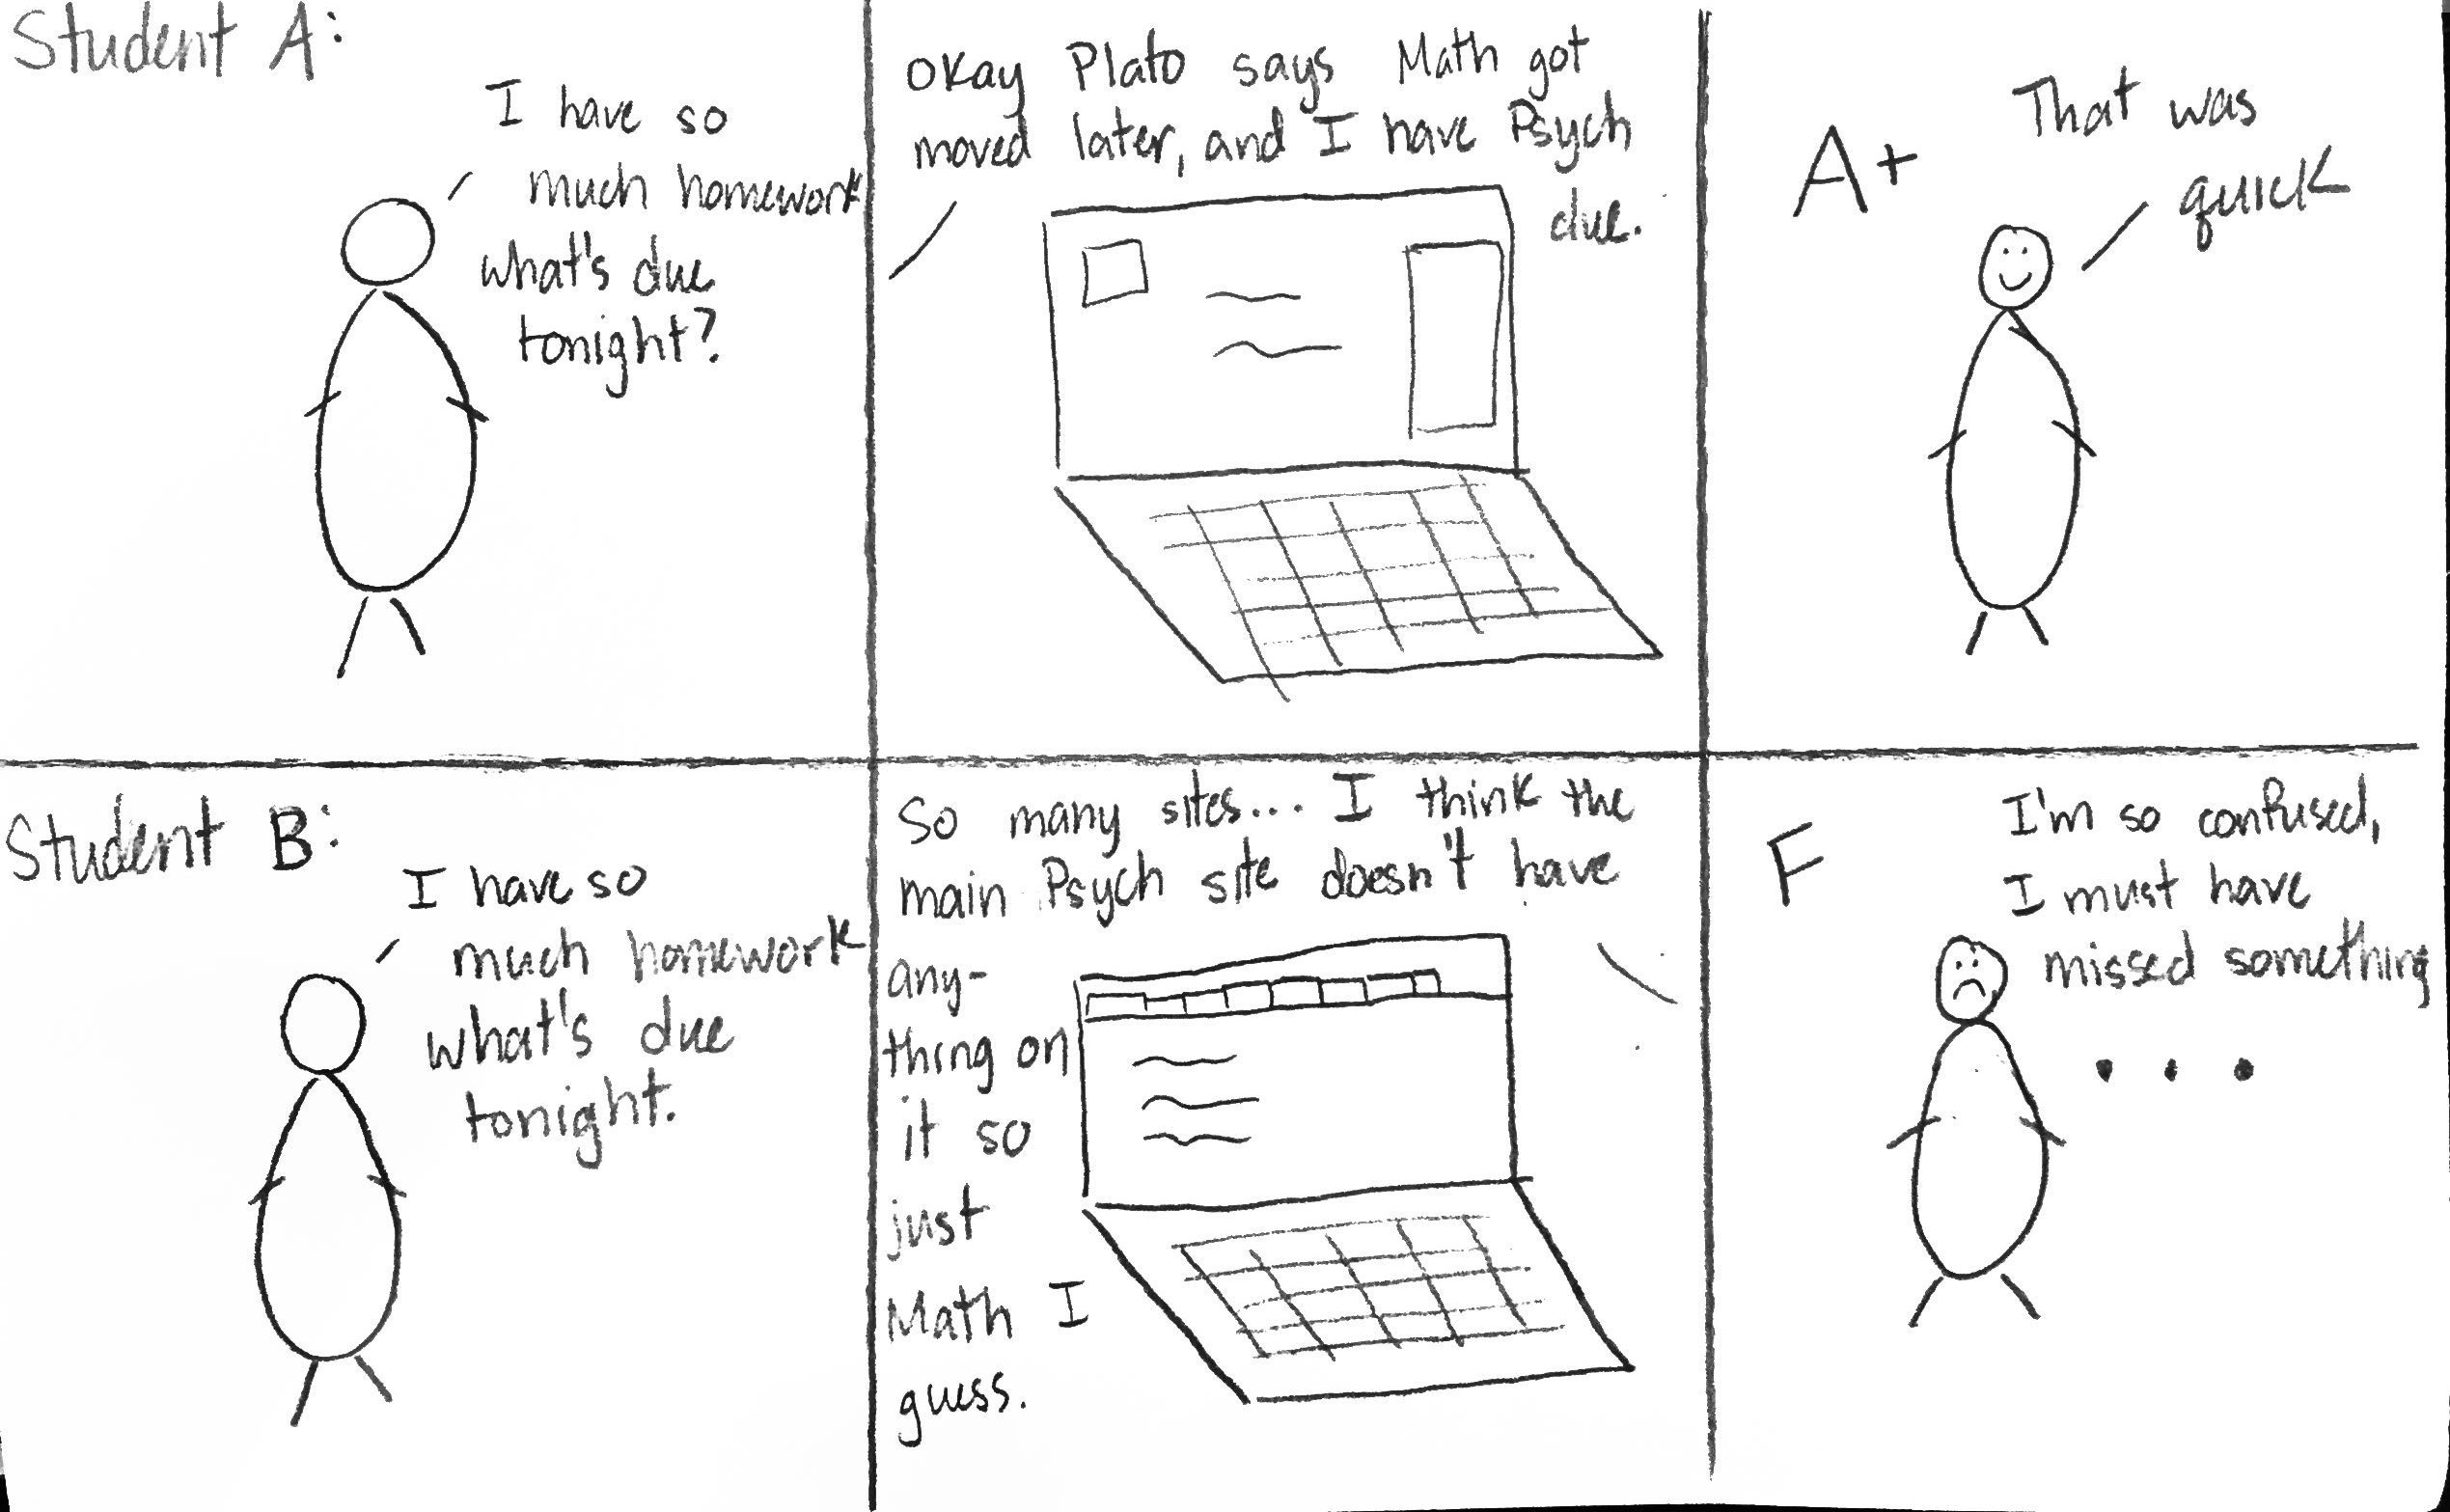 Student A:
I have so
much homework
what's due
tonight?
Okay Plato says Math got
moved later, and I have Psych
due.
A+
That was
quick
Student B:
I have so
much homework
what's due
tonight.
So many sites... I think the
main Psych site doesn't have
any-
thing on
it so
just
Math I
guess.
F
I'm so confused,
I must have
missed something
...